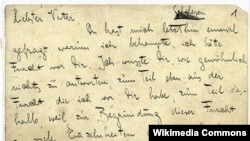 1
Liebster Vater
Du hast mich letzthin einmal
gefragt warum ich behaupte, ich hätte
Furcht vor Dir. Ich wusste Dir, wie gewöhnlich,
nichts zu antworten, zum Teil eben aus der
Furcht die ich vor Dir habe, zum Teil des-
halb weil zur Begründung dieser Furcht
viele Einzelheiten
Wikimedia Commons